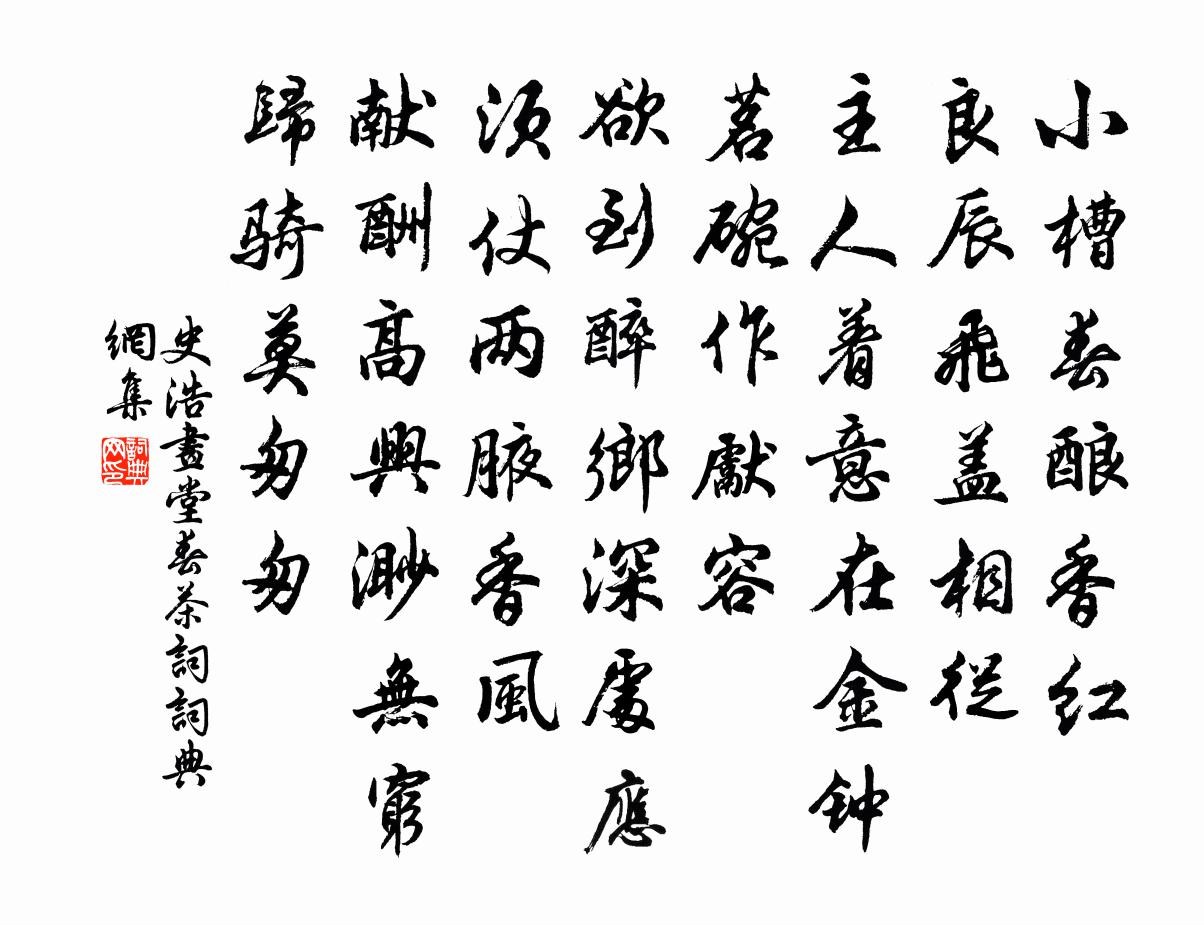 小槽春酿香红
良辰飛盖相從
主人着意在金钟
茗碗作獻容
欲到醉鄉深處應
須仗两腋香風
献酬高興渺無窮
歸騎莫匆匆
史浩畫堂春茶詞詞典
網集
詞典网印